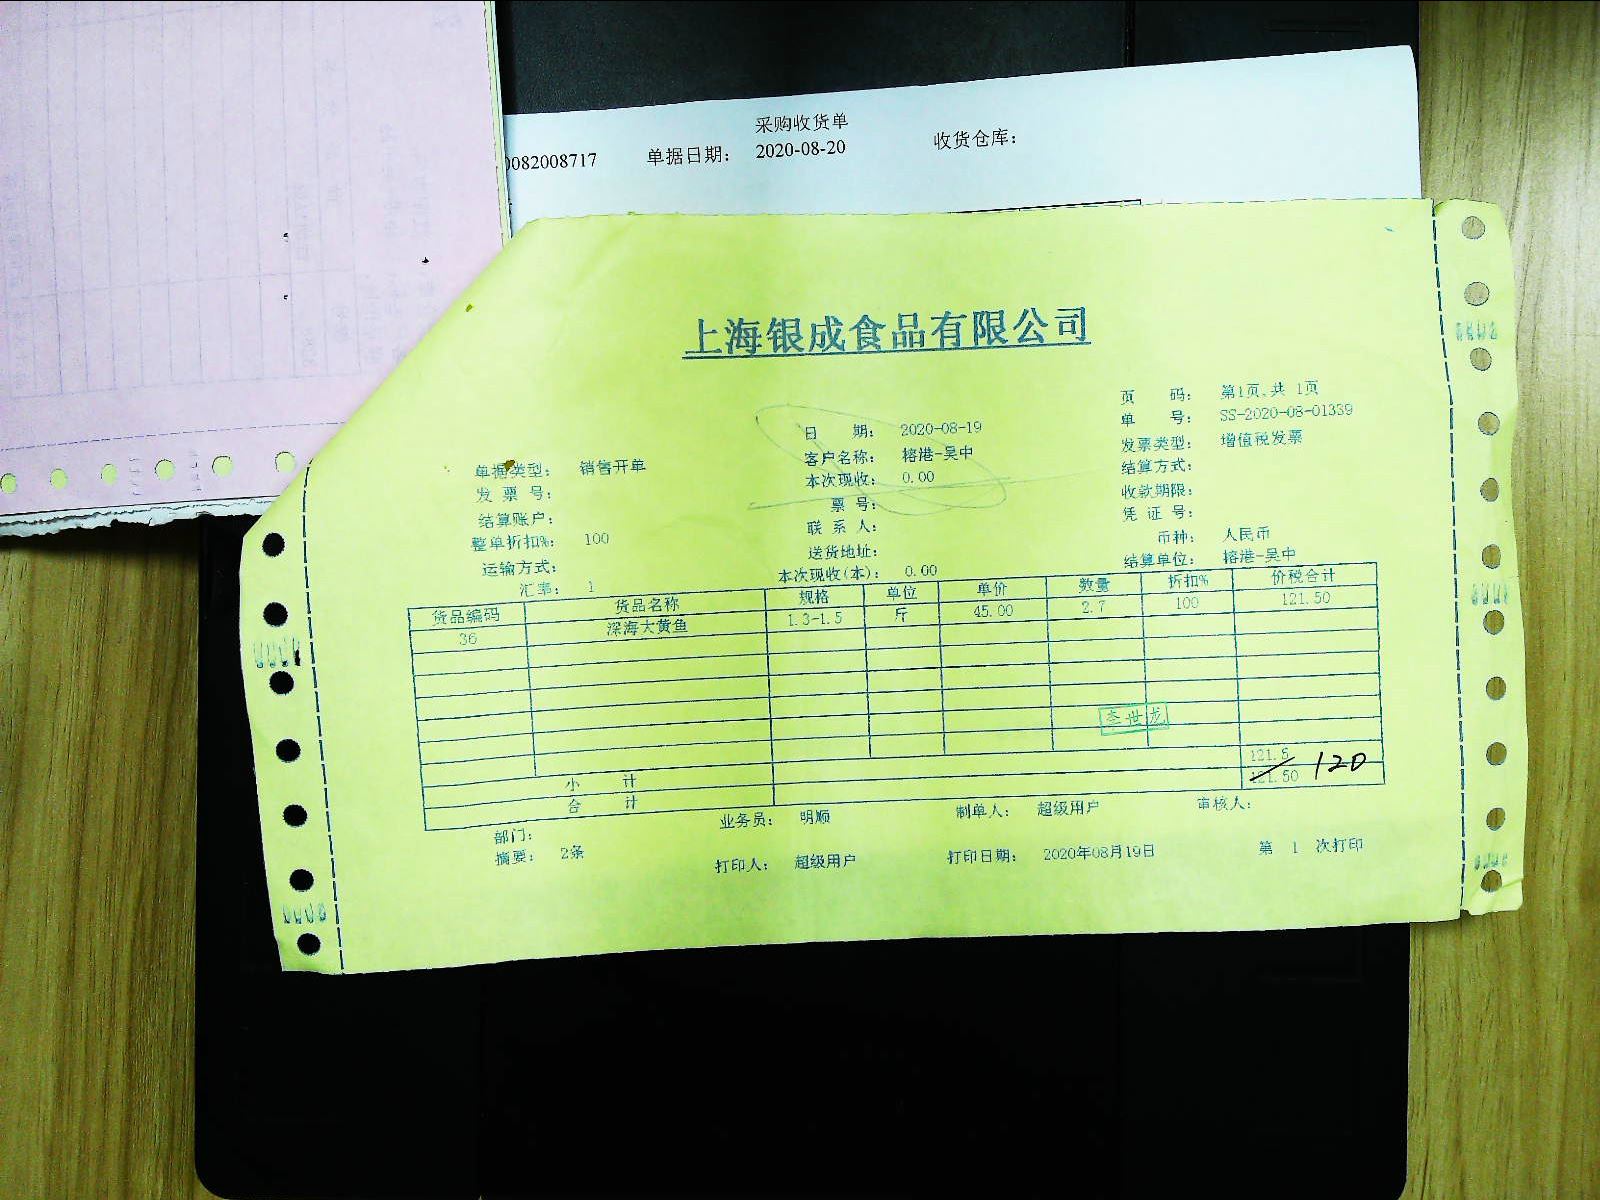 采购收货单
0082008717 单据日期： 2020-08-20 收货仓库：
上海银成食品有限公司
页 码： 第1页,共 1页
单 号： SS-2020-08-01339
日 期： 2020-08-19
发票类型： 增值税发票
单据类型： 销售开单
客户名称： 榕港-吴中
结算方式：
发 票 号：
本次现收： 0.00
收款期限：
结算账户：
票 号：
凭 证 号：
整单折扣%： 100
联 系 人：
币种： 人民币
运输方式：
送货地址：
结算单位： 榕港-吴中
汇率： 1
本次现收(本)： 0.00
货品编码 货品名称 规格 单位 单价 数量 折扣% 价税合计
36 深海大黄鱼 1.3-1.5 斤 45.00 2.7 100 121.50
李世龙
小 计 121.5
合 计 121.50 120
部门： 业务员： 明顺 制单人： 超级用户 审核人：
摘要： 2条 打印人： 超级用户 打印日期： 2020年08月19日 第 1 次打印